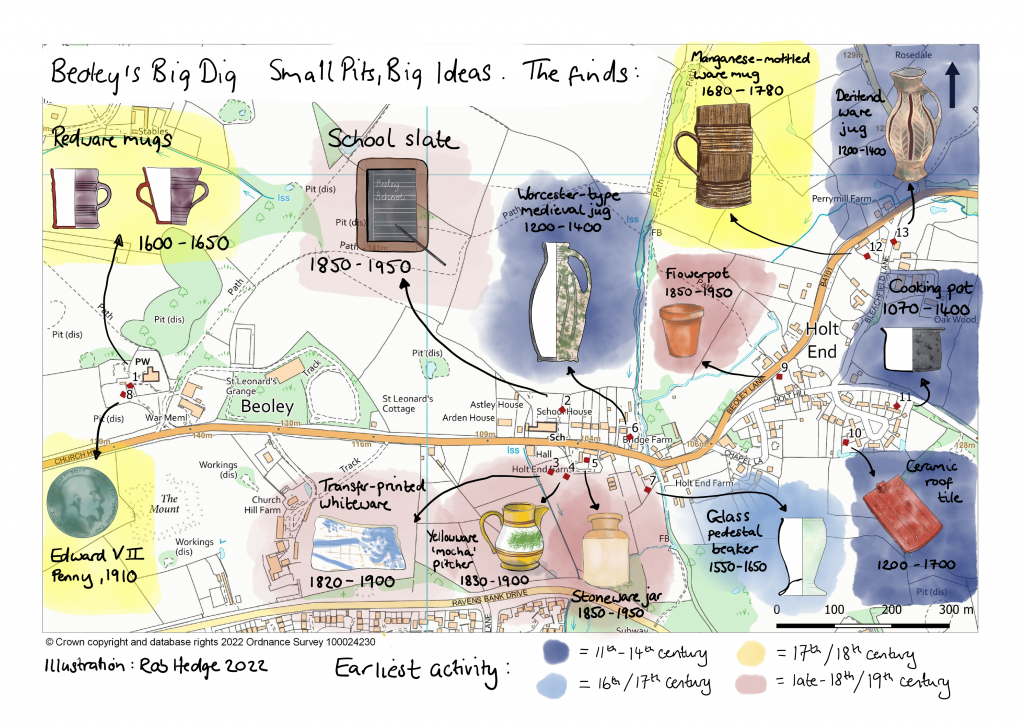 Beoley's Big Dig Small Pits, Big Ideas. The finds:
Redware mugs
1600-1650
School slate
Beoley
School
1850-1950
Worcester-type
medieval jug
1200-1400
Manganese-mottled
ware mug
1680-1780
Deritend
ware
jug
1200-1400
Flowerpot
1850-1950
Cooking pot
1070-1400
Edward VII
Penny, 1910
Transfer-printed
whiteware
1820-1900
Yellowware
'mocha'
pitcher
1830-1900
Stoneware jar
1850-1950
Glass
pedestal
beaker
1550-1650
Ceramic
roof
tile
1200-1700
Rosedale
129m
Stables
Iss
Pit (dis)
Pit (dis)
Path
Path
Path
Path
Path
Iss
FB
Perrymill Farm
13
12
B4101
BLEACHFIELD LANE
Oak Wood
Holt
End
Pit (dis)
Pit (dis)
Pit (dis)
PW
1
8
Pit (dis)
War Meml
St Leonard's
Grange
Track
Beoley
St Leonard's
Cottage
Astley House
Arden House
School House
2
Sch
6
Bridge Farm
9
BEOLEY LANE
HOLT HILL
11
10
128m
CHURCH HILL
140m
130m
116m
109m
104m
106m
Iss
Hall
Holt End Farm
3
4
5
7
Holt End Farm
CHAPEL LA
Workings
(dis)
Track
The
Mount
Church
Hill Farm
Workings
(dis)
FB
RAVENS BANK DRIVE
LANE
Subway
Pit (dis)
0 100 200 300 m
© Crown copyright and database rights 2022 Ordnance Survey 100024230
Illustration: Rob Hedge 2022
Earliest activity:
= 11th-14th century
= 16th/17th century
= 17th/18th century
= late-18th/19th century